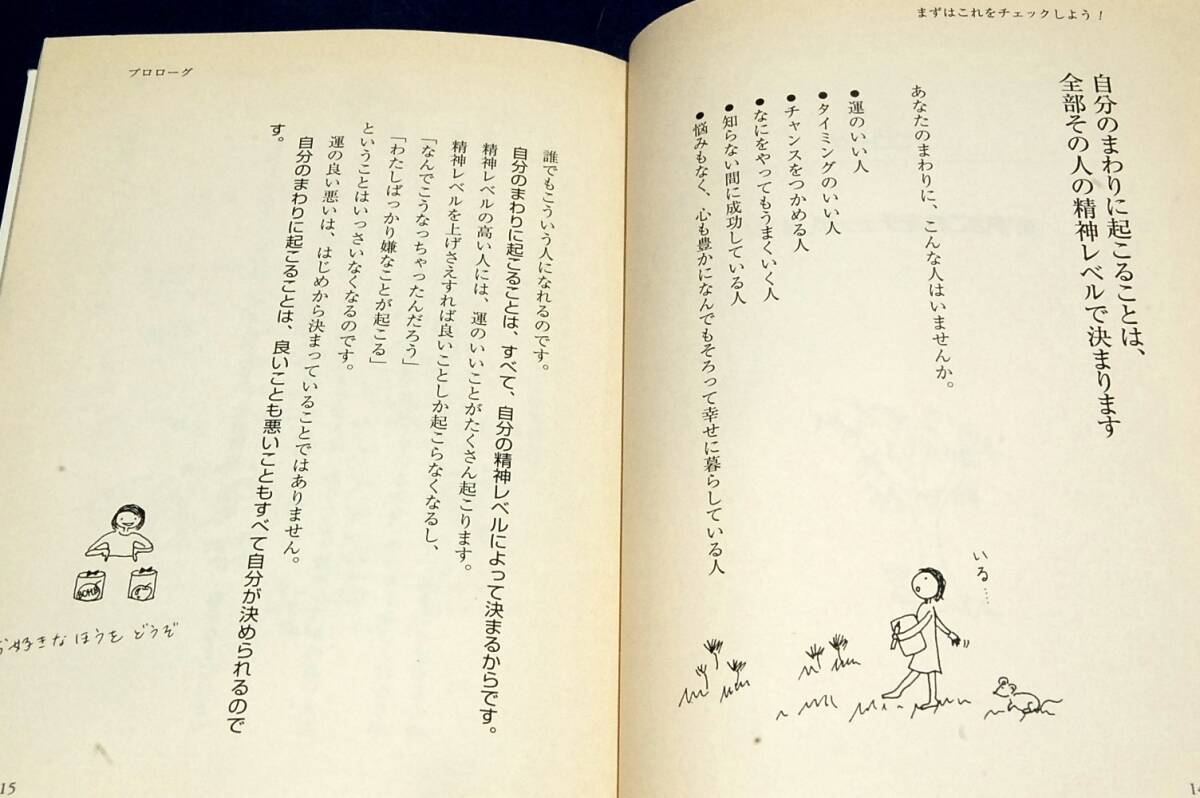 まずはこれをチェックしよう!
自分のまわりに起こることは、
全部その人の精神レベルで決まります
あなたのまわりに、こんな人はいませんか。
●運のいい人
●タイミングのいい人
●チャンスをつかめる人
●なにをやってもうまくいく人
●知らない間に成功している人
●悩みもなく、心も豊かになんでもそろって幸せに暮らしている人
いる……
プロローグ
誰でもこういう人になれるのです。
自分のまわりに起こることは、すべて、自分の精神レベルによって決まるからです。
精神レベルの高い人には、運のいいことがたくさん起こります。
精神レベルを上げさえすれば良いことしか起こらなくなるし、
「なんでこうなっちゃったんだろう」
「わたしばっかり嫌なことが起こる」
ということはいっさいなくなるのです。
運の良い悪いは、はじめから決まっていることではありません。
自分のまわりに起こることは、良いことも悪いこともすべて自分が決められるので
す。
お好きなほうを どうぞ
15